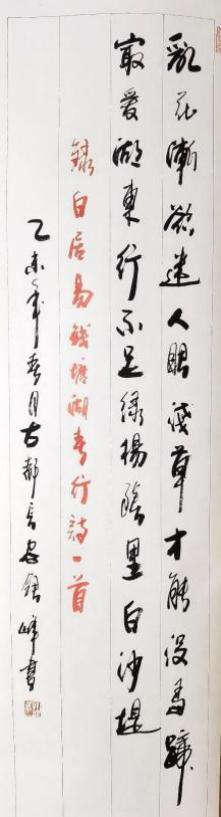 亂花漸欲迷人眼淺草才能沒馬蹄
最愛湖東行不足綠楊陰里白沙堤
錄白居易錢塘湖春行詩一首
乙未年春月古都長安錦峰書